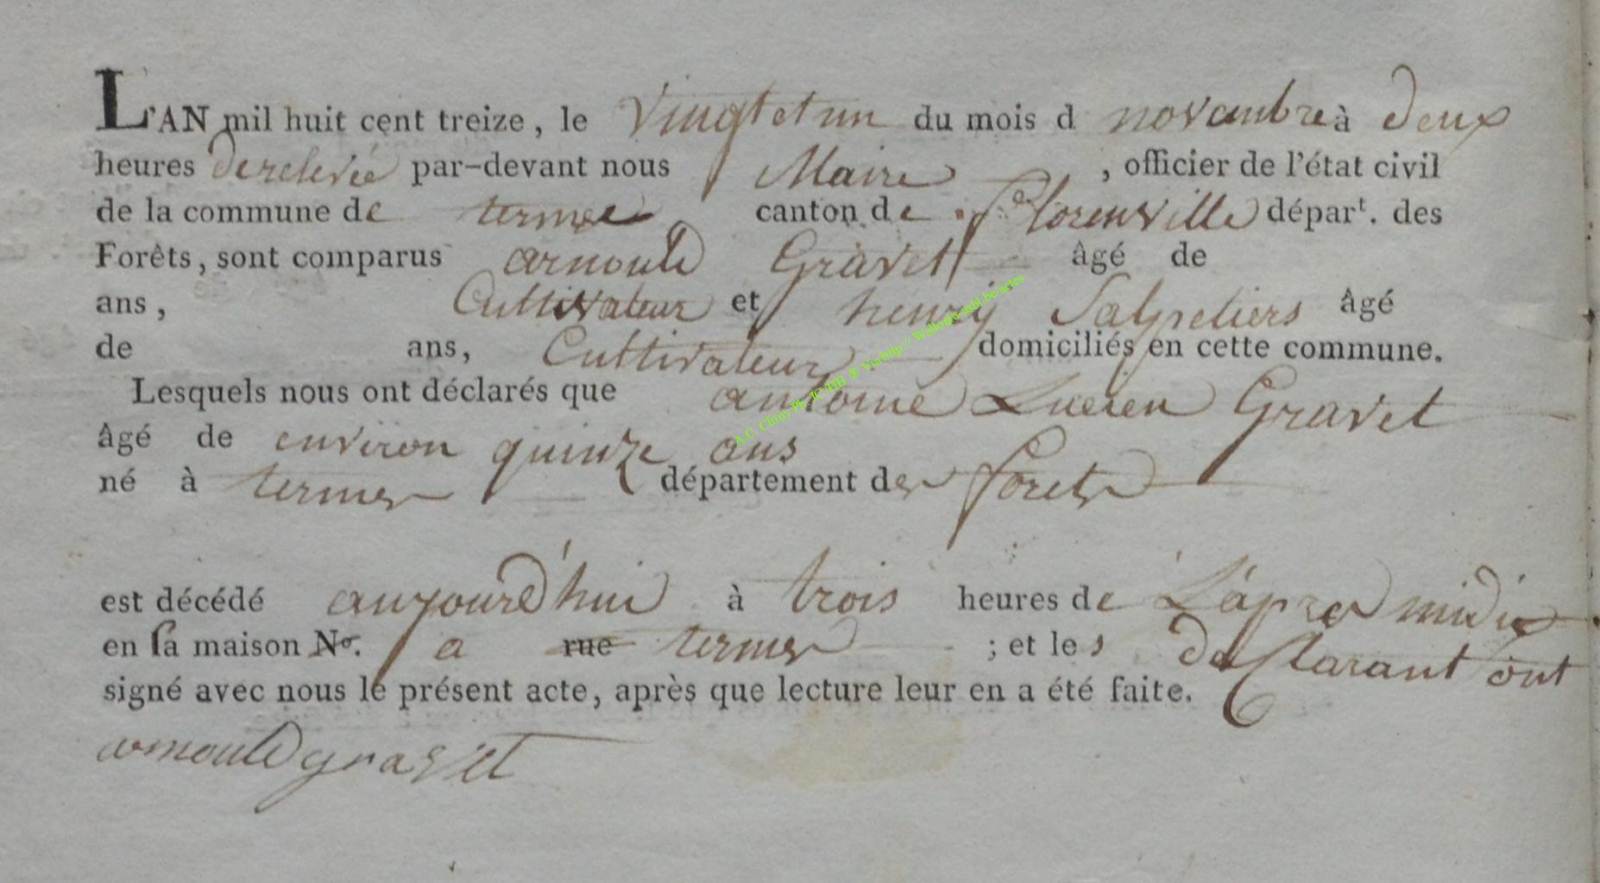 L'AN mil huit cent treize, le vingt et un du mois d novembre à deux
heures de relevée par-devant nous Maire , officier de l'état civil
de la commune de termes canton de florenville départ. des
Forêts, sont comparus arnould Gravet âgé de
ans, Cultivateur et henry Salpetiers âgé
de ans, Cultivateur domiciliés en cette commune.
Lesquels nous ont déclarés que antoine Lucien Gravet
âgé de environ quinze ans
né à termes département des forets
est décédé aujourd'hui à trois heures de L'apres midi
en sa maison No. a rue termes ; et les declarant ont
signé avec nous le présent acte, après que lecture leur en a été faite.
arnould gravet